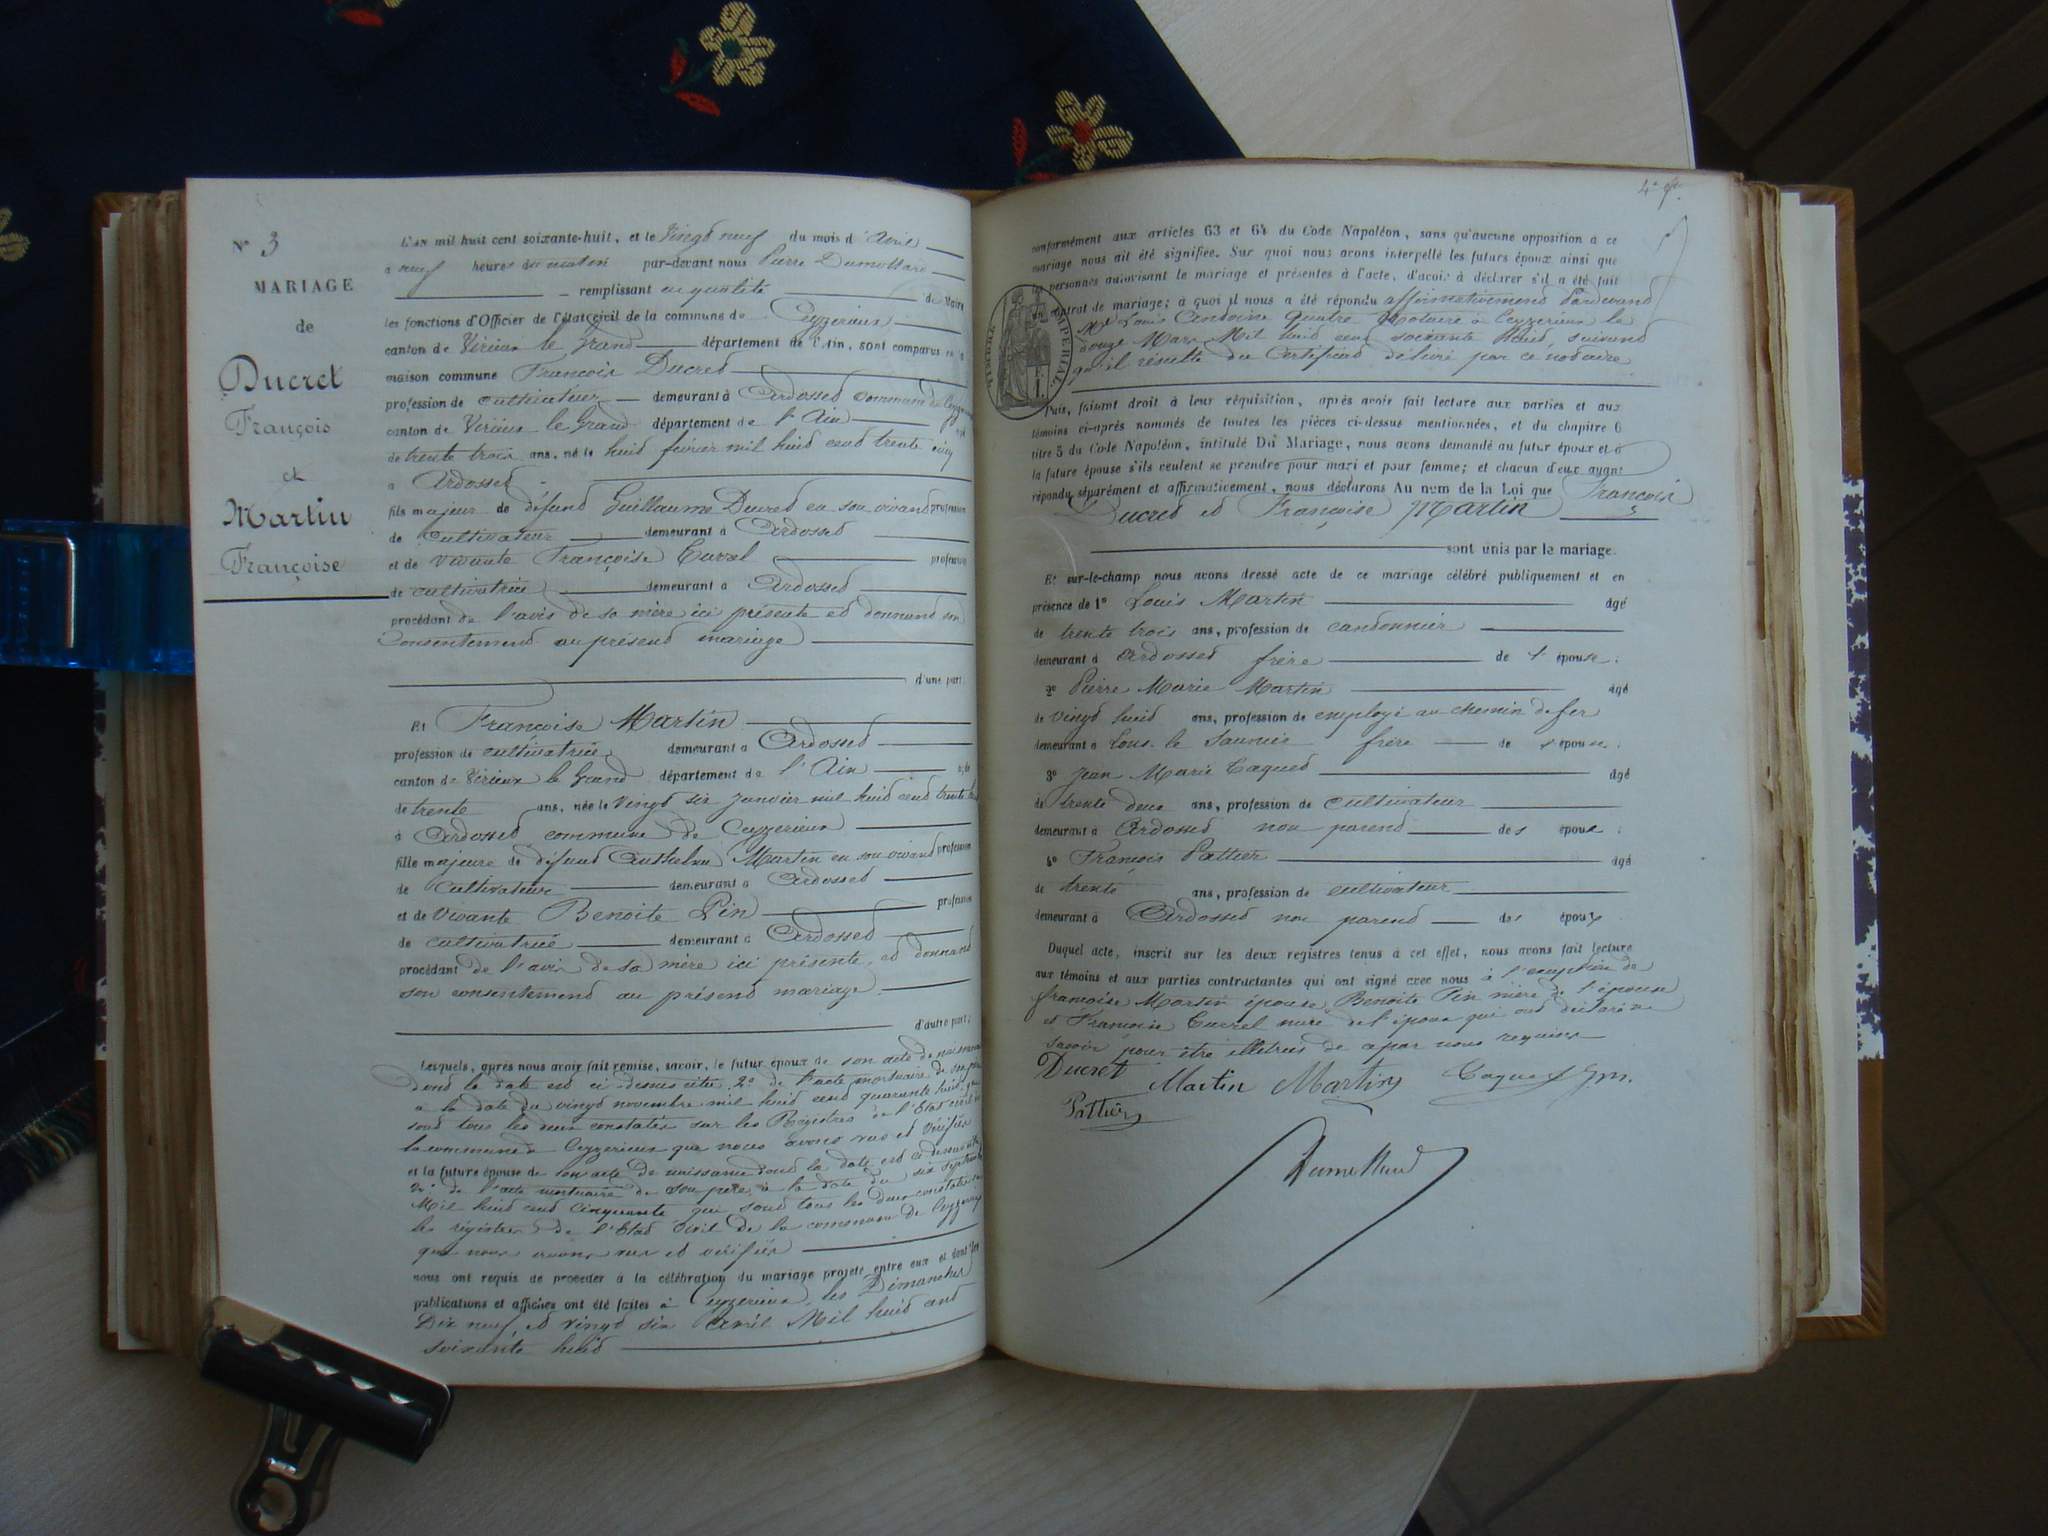 N° 3
MARIAGE
de
Ducret
François
et
Martin
Françoise
L'AN mil huit cent soixante-huit, et le Vingt neuf du mois d'Avril
à neuf heures du matin par-devant nous Pierre Dumollard
remplissant en qualité de Maire
les fonctions d'Officier de l'état civil de la commune de Ceyzerieux
canton de Virieux le Grand département de l'Ain, sont comparus en la
maison commune François Ducret
profession de cultivateur demeurant à Ardosset commune de Ceyzerieux
canton de Virieux le Grand département de l'Ain âgé
de trente trois ans, né le huit février mil huit cent trente cinq
à Ardosset
fils majeur de défunt Guillaume Ducret en son vivant profession
de Cultivateur demeurant à Ardosset
et de vivante Françoise Currel profession
de cultivatrice demeurant à Ardosset
procédant de l'avis de sa mère ici présente et donnant son
Consentement au présent mariage
d'une part;
Et Françoise Martin
profession de cultivatrice demeurant à Ardosset
canton de Virieux le Grand département de l'Ain âgée
de trente ans, née le vingt six janvier mil huit cent trente
à Ardosset commune de Ceyzerieux
fille majeure de défunt Anthelme Martin en son vivant profession
de Cultivateur demeurant à Ardosset
et de vivante Benoite Pin profession
de cultivatrice demeurant à Ardosset
procédant de l'avis de sa mère ici présente et donnant
son consentement au présent mariage
d'autre part;
Lesquels, après nous avoir fait remise, savoir, le futur époux de son acte de naissance
dont la date est ci dessus citée 2° de l'acte mortuaire de son père
à la date du vingt novembre mil huit cent quarante huit qui
sont tous les deux constatés sur les Registres de l'Etat civil de
la commune de Ceyzerieux que nous avons vus et vérifiés
et la future épouse de son acte de naissance dont la date est ci dessus citée
2° de l'acte mortuaire de son père à la date du six septembre
Mil huit cent cinquante qui sont tous les deux constatés sur
les registres de l'Etat Civil de la commune de Ceyzerieux
que nous avons vus et vérifiés
nous ont requis de procéder à la célébration du mariage projeté entre eux et dont les
publications et affiches ont été faites à Ceyzerieux, les Dimanches
Dix neuf et vingt six Avril Mil huit cent
soixante huit
conformément aux articles 63 et 64 du Code Napoléon, sans qu'aucune opposition à ce
mariage nous ait été signifiée. Sur quoi nous avons interpellé les futurs époux ainsi que
les personnes autorisant le mariage et présentes à l'acte, d'avoir à déclarer s'il a été fait
un contrat de mariage; à quoi il nous a été répondu affirmativement Pardevant
Me Louis Antoine Quatre Notaire à Ceyzerieux le
douze Mars Mil huit cent soixante huit, suivant
qu'il résulte du Certificat délivré par ce notaire
TIMBRE IMPERIAL
Puis, faisant droit à leur réquisition, après avoir fait lecture aux parties et aux
témoins ci-après nommés de toutes les pièces ci-dessus mentionnées, et du chapitre 6
titre 5 du Code Napoléon, intitulé Du Mariage, nous avons demandé au futur époux et à
la future épouse s'ils veulent se prendre pour mari et pour femme; et chacun d'eux ayant
répondu séparément et affirmativement, nous déclarons Au nom de la Loi que François
Ducret et Françoise Martin
sont unis par le mariage.
Et sur-le-champ nous avons dressé acte de ce mariage célébré publiquement et en
présence de 1° Louis Martin âgé
de trente trois ans, profession de cantonnier
demeurant à Ardosset frère de l'épouse;
2° Pierre Marie Martin âgé
de vingt huit ans, profession de employé au chemin de fer
demeurant à Lons-le Saunier frère de l'épouse;
3° Jean Marie Caquet âgé
de trente deux ans, profession de cultivateur
demeurant à Ardosset non parent des époux;
4° François Pattier âgé
de trente ans, profession de cultivateur
demeurant à Ardosset non parent des époux
Duquel acte, inscrit sur les deux registres tenus à cet effet, nous avons fait lecture
aux témoins et aux parties contractantes qui ont signé avec nous à l'exception de
françoise Martin épouse, Benoite Pin mère de l'épouse
et Françoise Currel mère de l'époux qui ont déclaré ne
savoir pour être illettrées de ce par nous requises
Ducret Martin Martin Caquet Jm.
Pattier
Dumollard